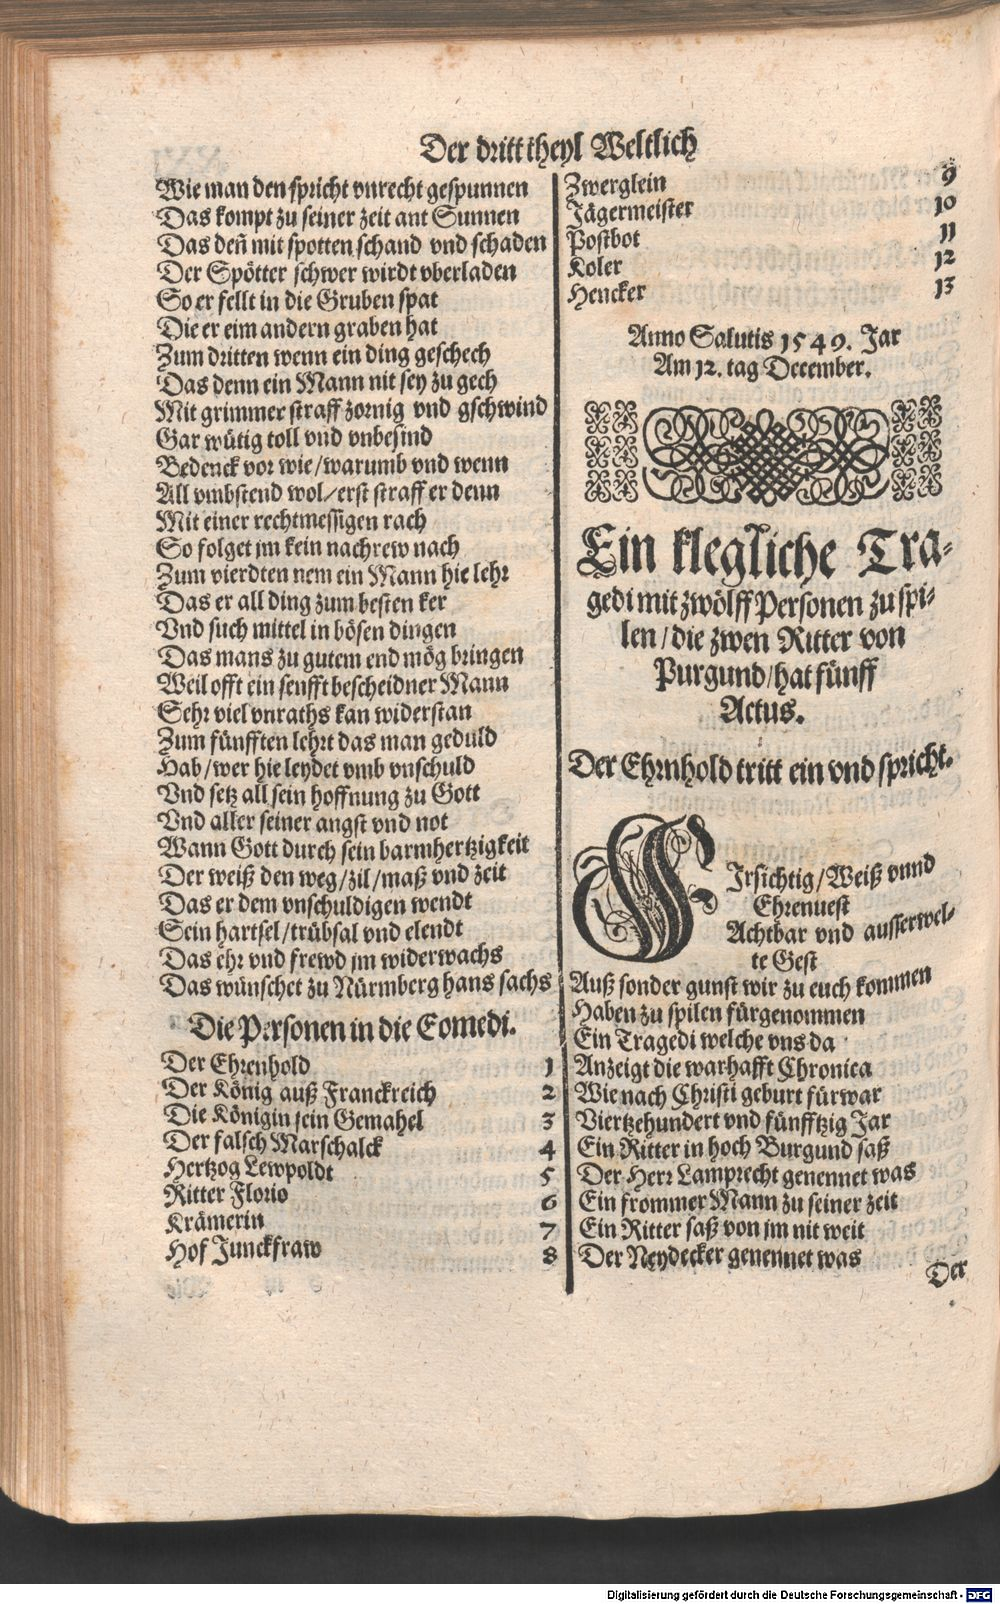 Der dritt theyl Weltlich
Wie man den spricht vnrecht gespunnen
Das kompt zu seiner zeit ant Sunnen
Das den̄ mit spotten schand vnd schaden
Der Spötter schwer wirdt vberladen
So er fellt in die Gruben spat
Die er eim andern graben hat
Zum dritten wenn ein ding geschech
Das denn ein Mann nit sey zu gech
Mit grimmer straff zornig vnd gschwind
Gar wütig toll vnd vnbesind
Bedenck vor wie/warumb vnd wenn
All vmbstend wol/erst straff er denn
Mit einer rechtmessigen rach
So folget jm kein nachrew nach
Zum vierdten nem ein Mann hie lehr
Das er all ding zum besten ker
Vnd such mittel in bösen dingen
Das mans zu gutem end mög bringen
Weil offt ein senfft bescheidner Mann
Sehr viel vnraths kan widerstan
Zum fünfften lehrt das man geduld
Hab/wer hie leydet vmb vnschuld
Vnd setz all sein hoffnung zu Gott
Vnd aller seiner angst vnd not
Wann Gott durch sein barmhertzigkeit
Der weiß den weg/zil/maß vnd zeit
Das er dem vnschuldigen wendt
Sein hartsel/trübsal vnd elendt
Das ehr vnd frewd jm widerwachs
Das wünschet zu Nürmberg hans sachs
Die Personen in die Comedi.
Der Ehrenhold 1
Der König auß Franckreich 2
Die Königin sein Gemahel 3
Der falsch Marschalck 4
Hertzog Lewpoldt 5
Ritter Florio 6
Krämerin 7
Hof Junckfraw 8
Zwerglein 9
Jägermeister 10
Postbot 11
Koler 12
Hencker 13
Anno Salutis 1549. Jar
Am 12. tag December.
Ein klegliche Tra-
gedi mit zwölff Personen zu spi-
len/die zwen Ritter von
Purgund/hat fünff
Actus.
Der Ehrnhold tritt ein vnd spricht.
FJrsichtig/Weiß vnnd
Ehrenuest
Achtbar vnd ausserwel-
te Gest
Auß sonder gunst wir zu euch kommen
Haben zu spilen fürgenommen
Ein Tragedi welche vns da
Anzeigt die warhafft Chronica
Wie nach Christi geburt fürwar
Viertzehundert vnd fünfftzig Jar
Ein Ritter in hoch Burgund saß
Der Herr Lamprecht genennet was
Ein frommer Mann zu seiner zeit
Ein Ritter saß von jm nit weit
Der Neydecker genennet was
Der
Digitalisierung gefördert durch die Deutsche Forschungsgemeinschaft - DFG